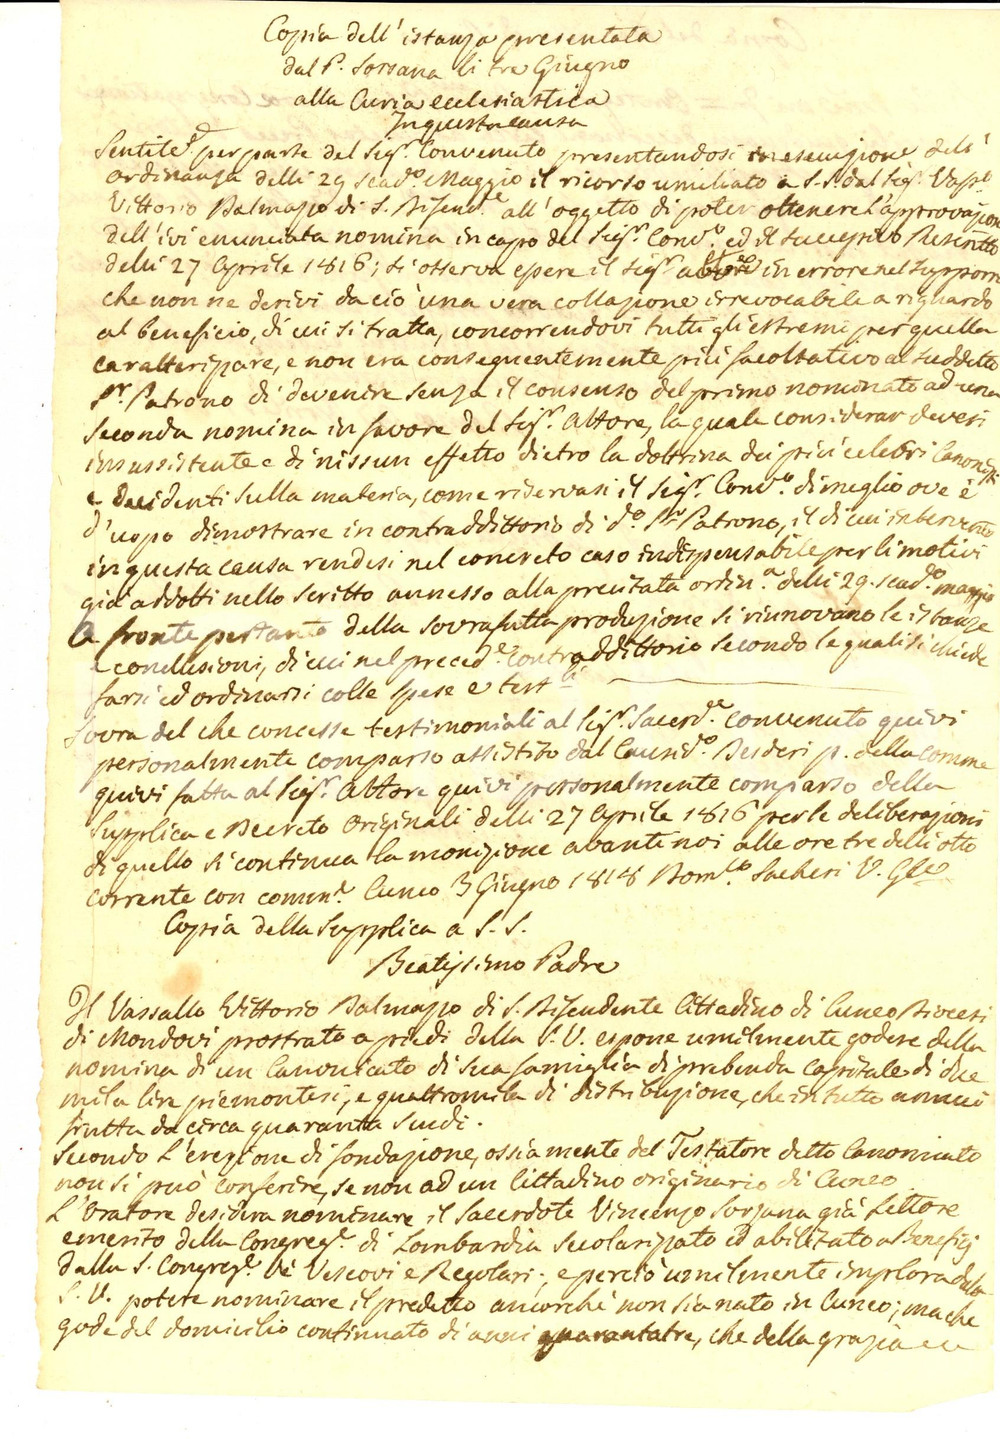 Copia dell'istanza presentata
dal P. Sorzana li tre Giugno
alla Curia ecclesiastica
In questa causa
Sentite per parte del Sig.r Convenuto presentandosi in esecuzione dell'
ordinanza delli 29 scad.o Maggio il ricorso umiliato a S.S. dal Sig.r Vass.o
Vittorio Dalmazzo di S. Difend.e all'oggetto di poter ottenere l'approvazione
dell'ivi enunciata nomina in capo del Sig.r Conv.o, ed il successivo Rescritto
delli 27 Aprile 1816; si osserva essere il Sig.r attore in errore nel supporre
che non ne derivi da ciò una vera collazione irrevocabile a riguardo
al beneficio, di cui si tratta, concorrendovi tutti gli estremi per quella
caratterizzare, e non era conseguentemente più facoltativo al suddetto
Sr. Patrono di devenire senza il consenso del primo nominato ad una
seconda nomina in favore del Sig.r Attore, la quale considerar devesi
insussistente e di nissun effetto dietro la dottrina dei più celebri Canonisti
e decidenti sulla materia, come riservasi il Sig.r Conv.o di meglio ove è
d'uopo dimostrare in contraddittorio di d.o Sr. Patrono, il di cui intervento
in questa causa rendesi nel concreto caso indispensabile per li motivi
già addotti nello scritto annesso alla precitata ordin.a delli 29 scad.o maggio
A fronte pertanto della sovrafatta produzione si rinnovano le istanze
e conclusioni, di cui nel preced.e contraddittorio secondo le quali si chiede
farsi ed ordinarsi colle spese e test.li
Sovra del che concesse testimoniali al Sig.r Sacerd.e convenuto quivi
personalmente comparso assistito dal Causid.o Desderi p. della comme
quivi fatta al Sig.r Attore quivi personalmente comparso della
Supplica e Decreto originali delli 27 Aprile 1816 per le deliberazioni
di quello si continua la monizione avanti noi alle ore tre delli otto
corrente con comm.e Cuneo 3 Giugno 1818 Dom.co Sacheri V. G.le
Copia della Supplica a S. S.
Beatissimo Padre
Il Vassallo Vittorio Dalmazzo di S. Difendente Cittadino di Cuneo Diocesi
di Mondovi prostrato a piedi della S.V. espone umilmente godere della
nomina di un Canonicato di sua famiglia di prebenda capitale di due
mila lire piemontesi, e quattromila di distribuzione, che in tutto annui
frutta da circa quaranta Scudi.
Secondo l'erezione di fondazione, ossia mente del Testatore detto Canonicato
non si può conferire, se non ad un Cittadino originario di Cuneo
L'Oratore desidera nominare il Sacerdote Vincenzo Sorzana già Lettore
emerito della Congreg.e di Lombardia Secolarizzato ed abilitato a Benefizj
dalla S. Congreg.e de Vescovi e Regolari; e perciò umilmente implora dalla
S. V. potere nominare il predetto ancorché non sia nato in Cuneo; ma che
gode del domicilio continuato di anni quarantatre, che della grazia